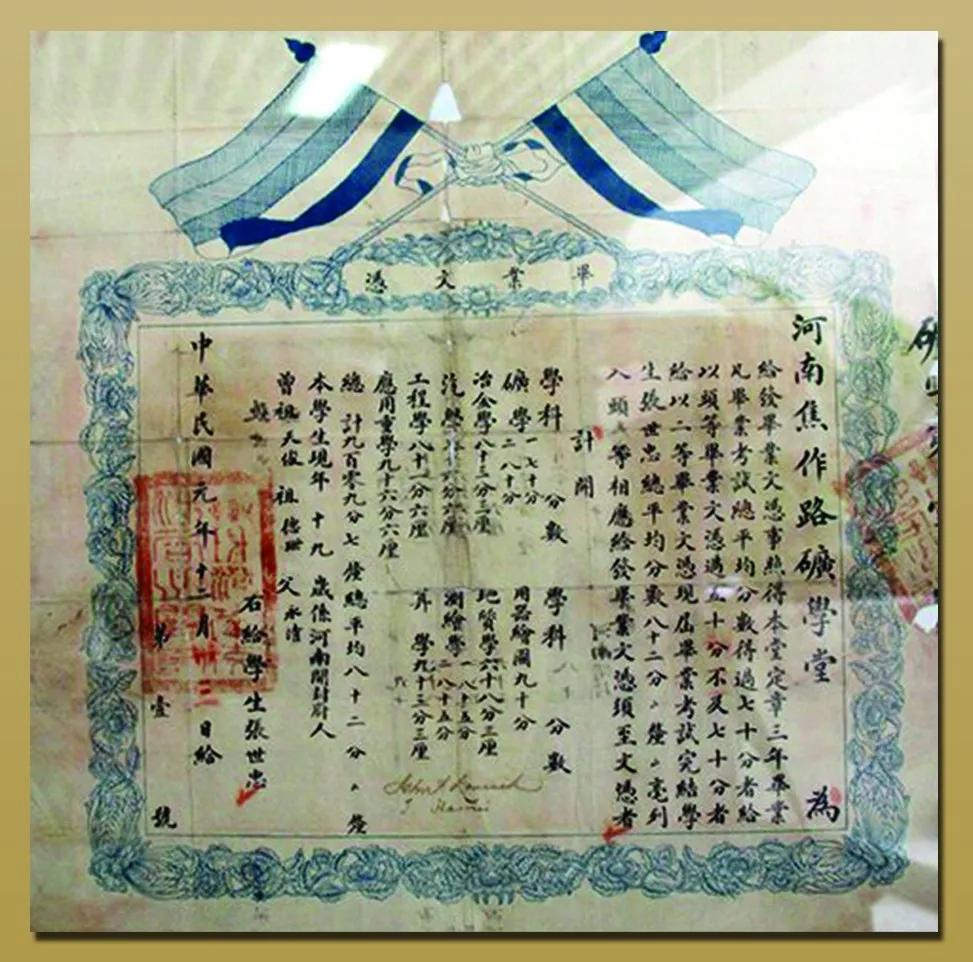 畢業文憑
河南焦作路礦學堂 為
給發畢業文憑事照得本堂定章三年畢業
凡畢業考試總平均分數得過七十分者給
以頭等畢業文憑過五十分不及七十分者
給以二等畢業文憑現屆畢業考試完結學
生張世忠總平均分數八十二分
列
入頭等相應給發畢業文憑須至文憑者
計開
學科 分數 學科 分數
礦學 一 七十分 二 八十分 用器繪圖九十分
冶金學八十三分三厘 地質學六十八分三厘
測繪學 一 八十五分 二 八十五分
工程學八十一分六厘 算學九十三分三厘
應用重學九十六分六厘
總計九百零九分七釐總平均八十二分
釐
本學生現年十九歲係河南開封府
人
曾祖天俊 祖德 父永清
右給學生張世忠
中華民國元年十二月
三日給
第壹號